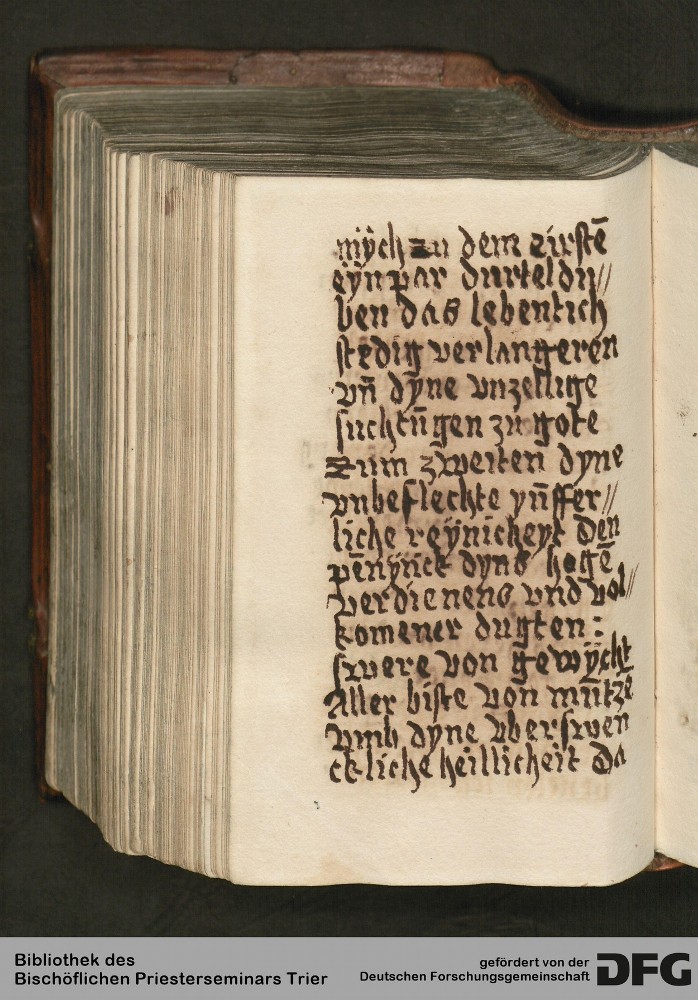 mÿch zu dem eirstē
eÿn par durteldu//
ben das lebentich
stedig verlangeren
vn̄ dÿne vnzellige
suchtūgen zu gote
Zum zweiten dÿne
vnbeflechte yūffer//
liche reÿnicheyt den
pēnÿnck dÿns hogē
verdienens vnd vol//
komener dugten:
swere von gewÿcht
Aller biste von mūtzē
vmb dÿne vberswen
ckliche heillicheit da
Bibliothek des
Bischöflichen Priesterseminars Trier
gefördert von der
Deutschen Forschungsgemeinschaft DFG